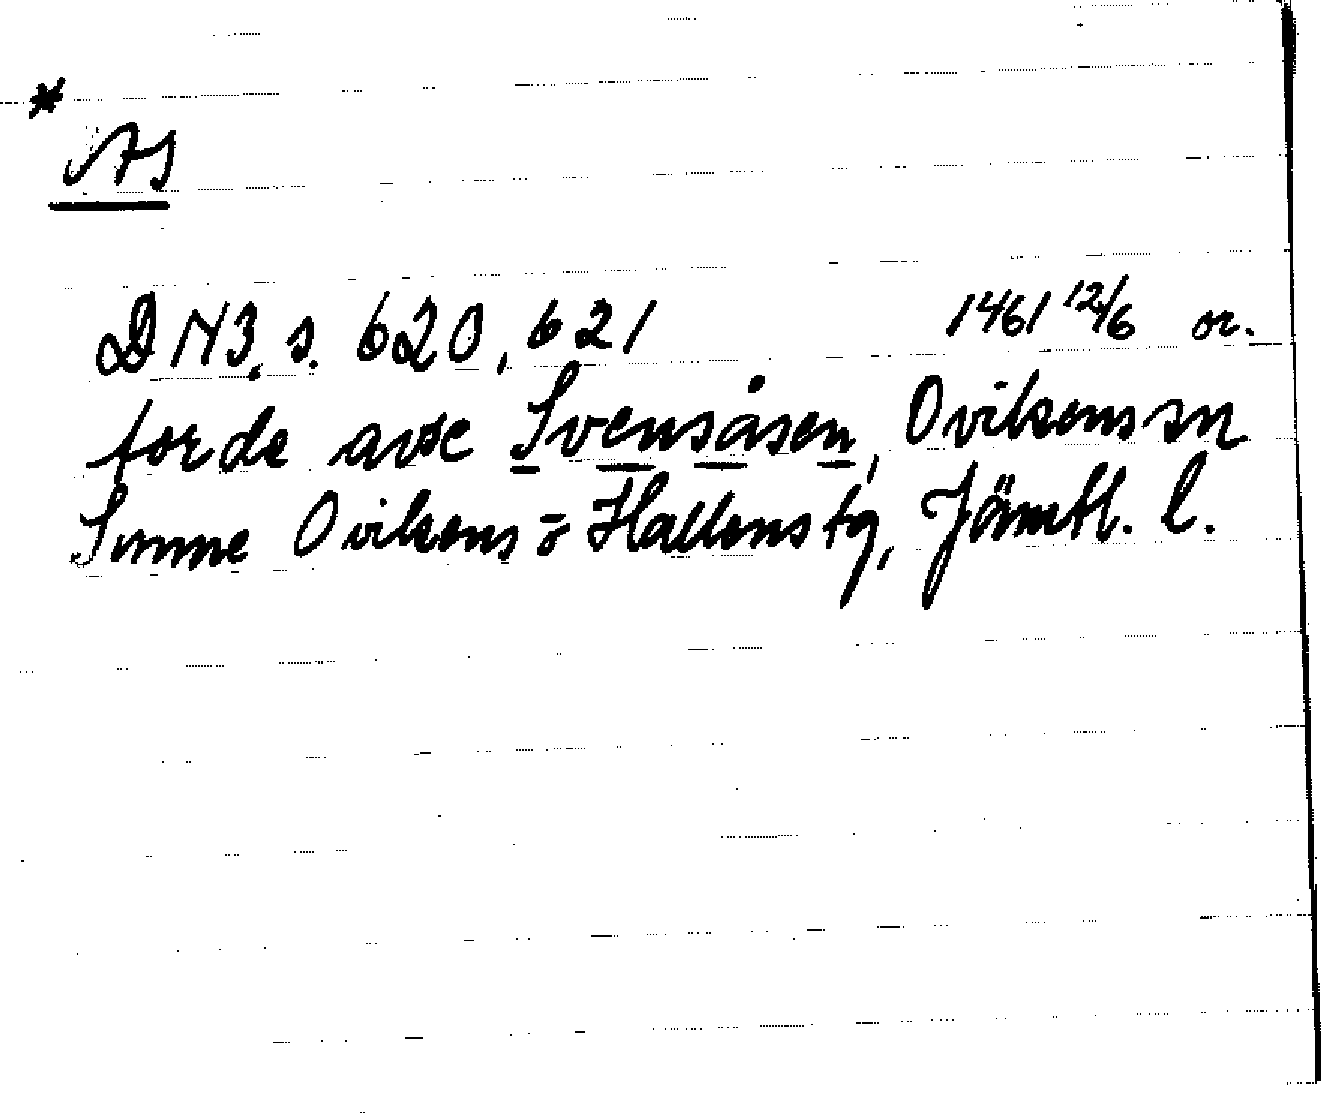 *
As
DN3, s. 620, 621 1461 12/6 or.
torde avse Svensåsen, Ovikens sn
Sunne Ovikens o Hallens tg, Jämtl. l.